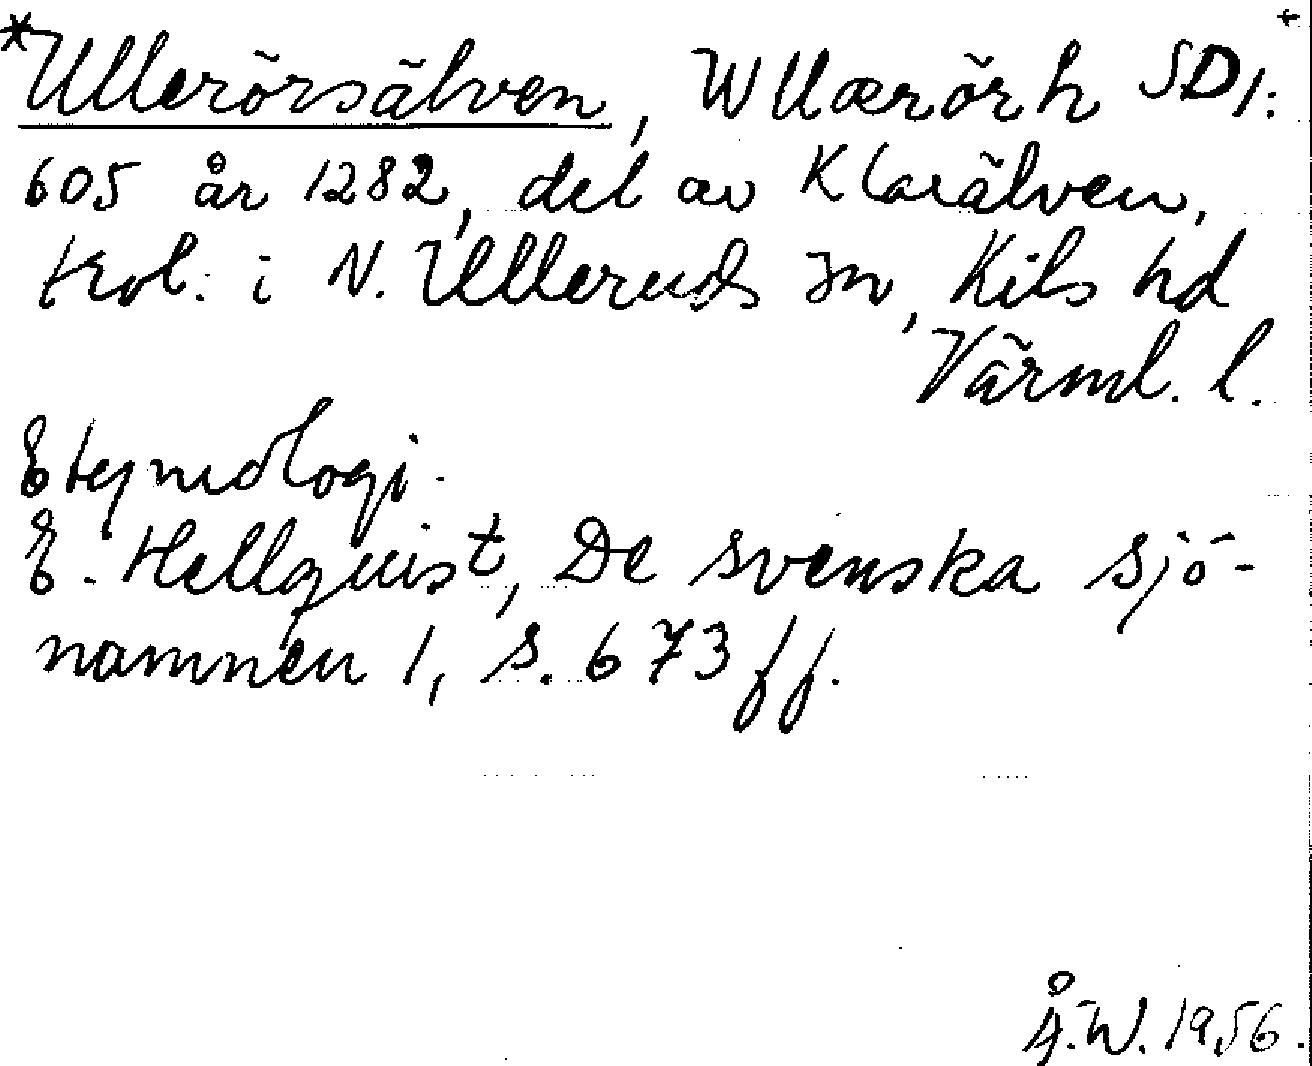 *Ullerörsälven, Wllærörh SD1: +
605 år 1282, del av Klarälven,
trol. i N. Ulleruds sn, Kils hd
Värml. l.
Etymologi.
E. Hellquist, De svenska sjö-
namnen 1, s. 673 ff.
Å.W. 1956.